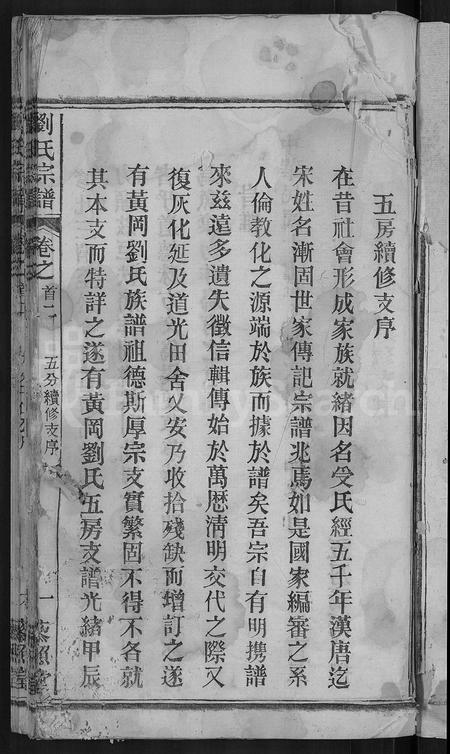 五房續修支序
在昔社會形成家族就緒因名受氏經五千年漢唐迄
宋姓名漸固世家傳記宗譜兆焉如是國家編審之系
人倫教化之源端於族而據於譜矣吾宗自有明攜譜
來茲遠多遺失徵信輯傳始於萬厯淸明交代之際又
復灰化延及道光田舍乂安乃收拾殘缺而增訂之遂
有黃岡劉氏族譜祖德斯厚宗支實繁固不得不各就
其本支而特詳之遂有黃岡劉氏五房支譜光緒甲辰
劉氏宗譜
卷之首一
五分續修支序
一